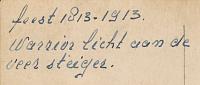 feest 1813-1913.
Warrior licht aan de
veer steiger.